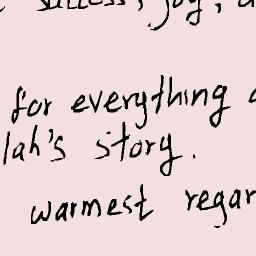 success, joy,
for everything
lah's story.
warmest regar